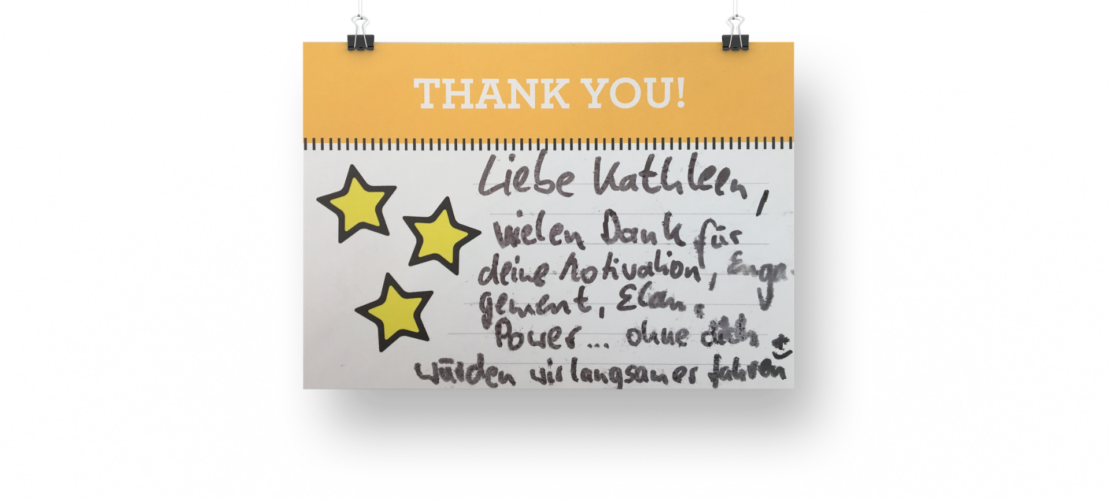 THANK YOU!
Liebe Kathleen,
vielen Dank für
deine Motivation, Enga-
gement, Elan,
Power... ohne dich
würden wir langsamer fahren